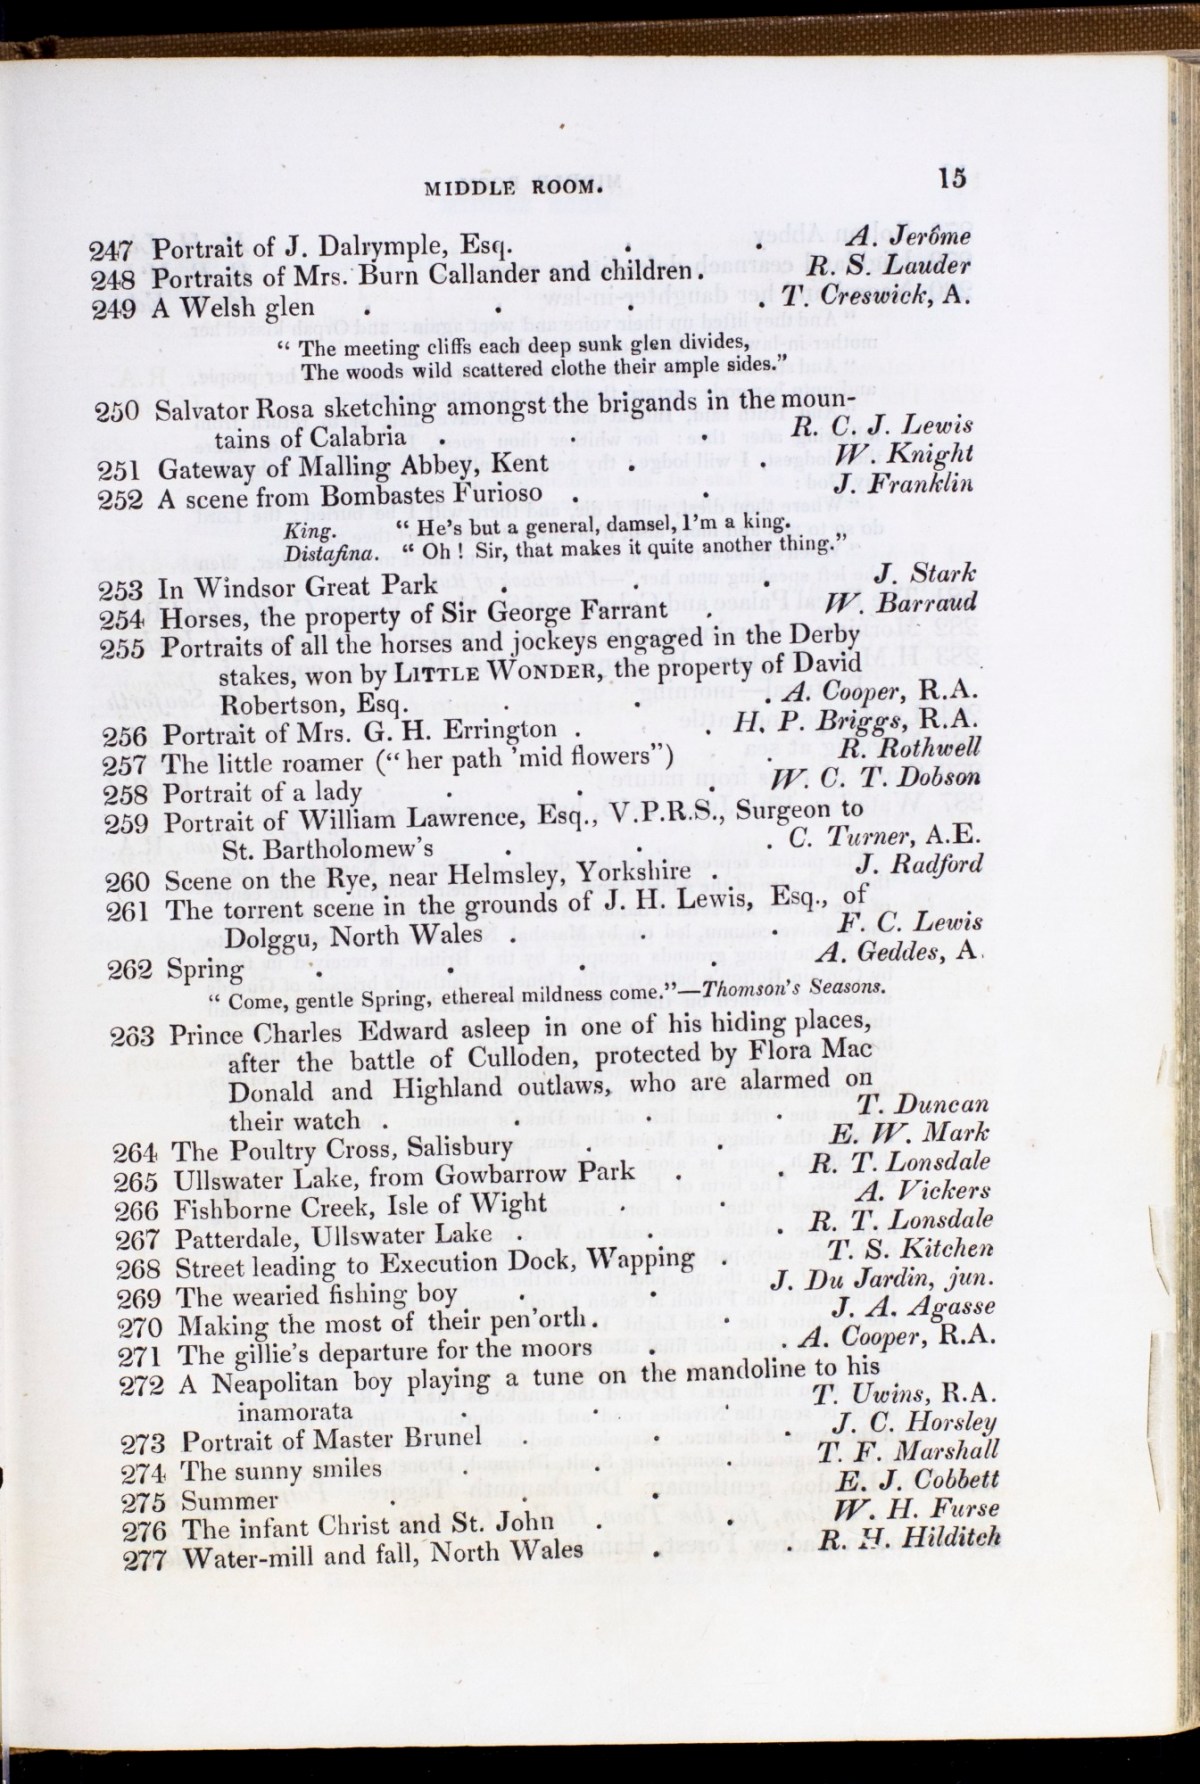 MIDDLE ROOM. 15
247 Portrait of J. Dalrymple, Esq. . . A. Jerôme
248 Portraits of Mrs. Burn Callander and children . R. S. Lauder
249 A Welsh glen . . . . T. Creswick, A.
“ The meeting cliffs each deep sunk glen divides,
The woods wild scattered clothe their ample sides.”
250 Salvator Rosa sketching amongst the brigands in the moun-
tains of Calabria . . . R. C. J. Lewis
251 Gateway of Malling Abbey, Kent . . W. Knight
252 A scene from Bombastes Furioso . . J. Franklin
King. “ He’s but a general, damsel, I’m a king.
Distafina. “ Oh ! Sir, that makes it quite another thing.”
253 In Windsor Great Park . . . J. Stark
254 Horses, the property of Sir George Farrant . W. Barraud
255 Portraits of all the horses and jockeys engaged in the Derby
stakes, won by LITTLE WONDER, the property of David
Robertson, Esq. . . . A. Cooper, R.A.
256 Portrait of Mrs. G. H. Errington . . H. P. Briggs, R.A.
257 The little roamer (“ her path ’mid flowers”) . R. Rothwell
258 Portrait of a lady . . . W. C. T. Dobson
259 Portrait of William Lawrence, Esq., V.P.R.S., Surgeon to
St. Bartholomew’s . . . C. Turner, A.E.
260 Scene on the Rye, near Helmsley, Yorkshire . J. Radford
261 The torrent scene in the grounds of J. H. Lewis, Esq., of
Dolggu, North Wales . . . F. C. Lewis
262 Spring . . . . A. Geddes, A.
“ Come, gentle Spring, ethereal mildness come.”—Thomson’s Seasons.
263 Prince Charles Edward asleep in one of his hiding places,
after the battle of Culloden, protected by Flora Mac
Donald and Highland outlaws, who are alarmed on
their watch . . . . T. Duncan
264 The Poultry Cross, Salisbury . . E. W. Mark
265 Ullswater Lake, from Gowbarrow Park . . R. T. Lonsdale
266 Fishborne Creek, Isle of Wight . . A. Vickers
267 Patterdale, Ullswater Lake . . . R. T. Lonsdale
268 Street leading to Execution Dock, Wapping . T. S. Kitchen
269 The wearied fishing boy . . J. Du Jardin, jun.
270 Making the most of their pen’orth . . J. A. Agasse
271 The gillie’s departure for the moors . . A. Cooper, R.A.
272 A Neapolitan boy playing a tune on the mandoline to his
inamorata . . . T. Uwins, R.A.
273 Portrait of Master Brunel . . . J. C. Horsley
274 The sunny smiles . . . T. F. Marshall
275 Summer . . . E. J. Cobbett
276 The infant Christ and St. John . . W. H. Furse
277 Water-mill and fall, North Wales . . R. H. Hilditch